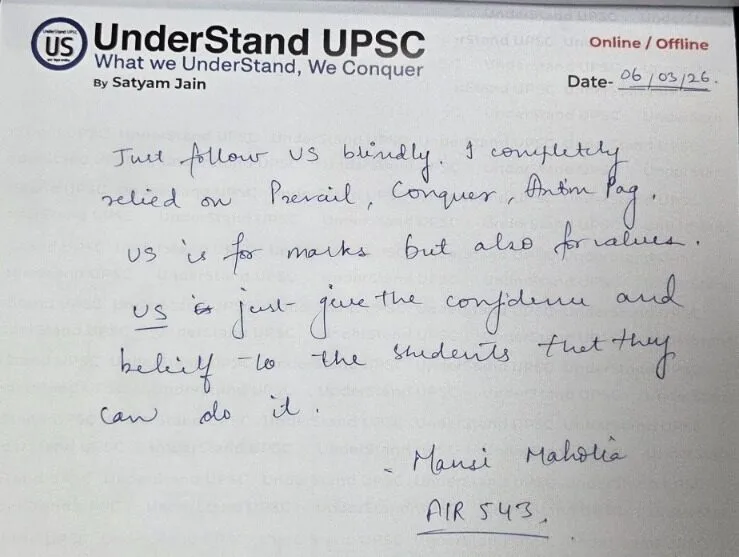 UnderStand UPSC
US
UnderStand UPSC
What we UnderStand, We Conquer
By Satyam Jain
Online / Offline
Date- 06/03/26.
Just follow US blindly. I completely
relied on Prevail, Conquer, Antim Pag.
US is for marks but also for values.
US just give the confidence and
belief to the students that they
can do it.
- Mansi Maholia
AIR 543.